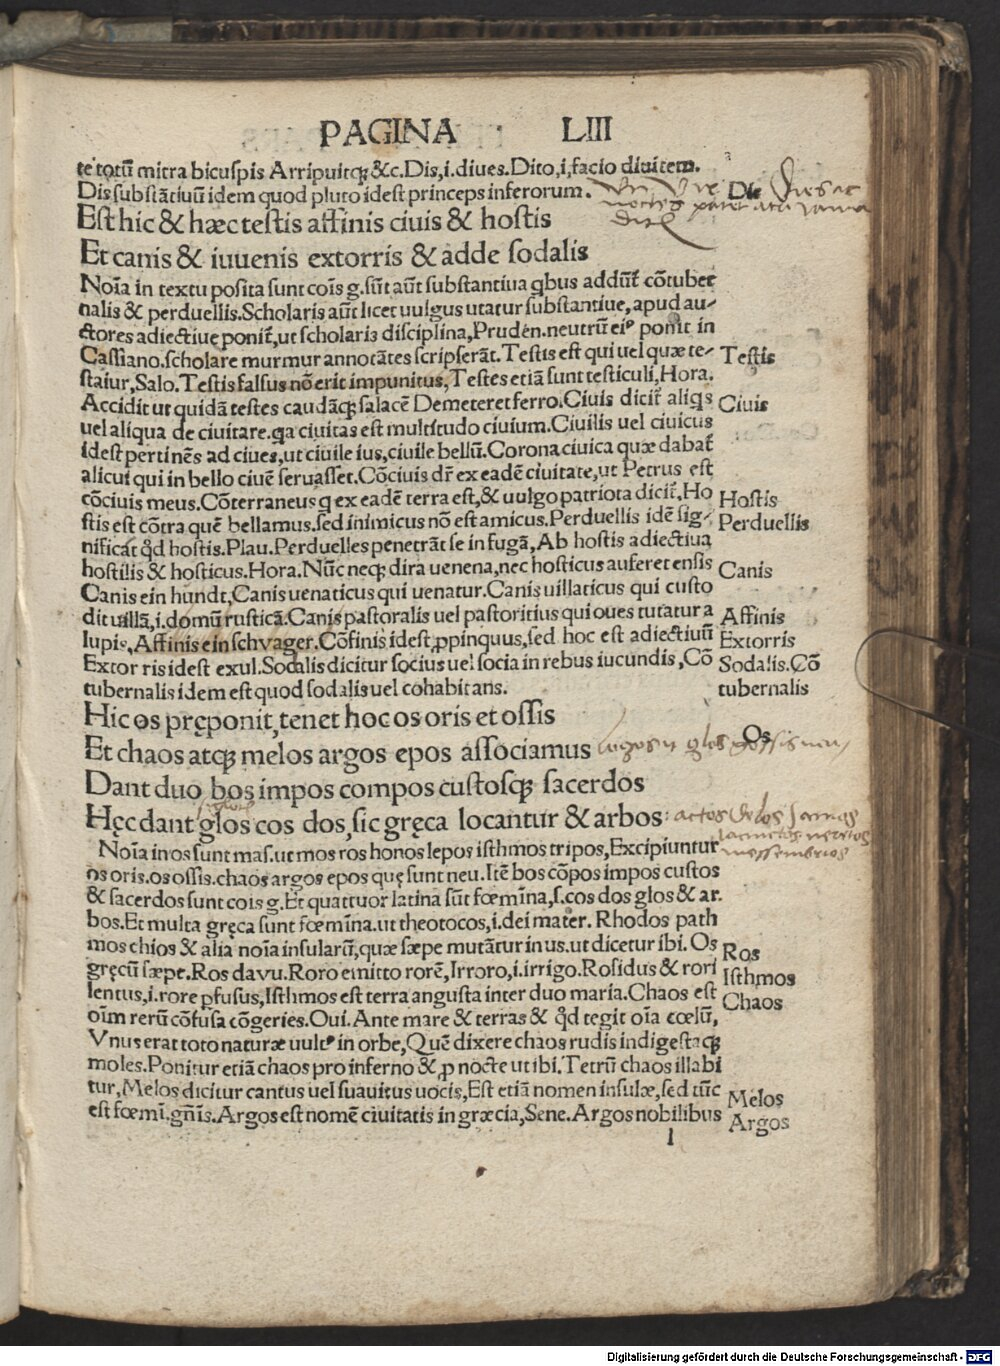 PAGINA LIII
te totū mitra bicuspis Arripuitqꝫ &c. Dis, i. diues. Dito, i, facio diuitem.
Dis substātiuū idem quod pluto idest princeps inferorum. Dis
Est hic & hæc testis affinis ciuis & hostis
Et canis & iuuenis extorris & adde sodalis
Noīa in textu posita sunt cōis g. sūt aūt substantiua qbus addūt̃ cōtuber
nalis & perduellis. Scholaris aūt licet uulgus utatur substantiue, apud au-
ctores adiectiue ponit̃, ut scholaris disciplina, Pruden. neutrū eiꝰ ponit in
Cassiano. scholare murmur annotātes scripserāt. Testis est qui uel quæ te- Testis
staiur, Salo. Testis falsus nō erit impunitus, Testes etiā sunt testiculi, Hora.
Accidit ut quidā testes caudāqꝫ salacē Demeteret ferro. Ciuis dicit̃ aliqs Ciuis
uel aliqua de ciuitate. qa ciuitas est multitudo ciuium. Ciuilis uel ciuicus
idest pertinēs ad ciues, ut ciuile ius, ciuile bellū. Corona ciuica quæ dabat̃
alicui qui in bello ciuē seruasset. Cōciuis dr̄ ex eadē ciuitate, ut Petrus est
cōciuis meus. Cōterraneus q ex eadē terra est, & uulgo patriota dicit̃. Ho Hostis
stis est cōtra quē bellamus. sed inimicus nō est amicus. Perduellis idē sig- Perduellis
nificat qd̄ hostis. Plau. Perduelles penetrāt se in fugā, Ab hostis adiectiua
hostilis & hosticus. Hora. Nūc neqꝫ dira uenena, nec hosticus auferet ensis
Canis ein hundt, Canis uenaticus qui uenatur. Canis uillaticus qui custo Canis
dit uillā, i. domū rusticā. Canis pastoralis uel pastoritius qui oues tutatur a
lupis, Affinis ein schvager. Cōfinis idest ꝓpinquus, sed hoc est adiectiuū Affinis
Extor ris idest exul. Sodalis dicitur socius uel socia in rebus iucundis, Cō Extorris
tubernalis idem est quod sodalis uel cohabitans. Sodalis. Cō
tubernalis
Hic os pręponit, tenet hoc os oris et ossis
Et chaos atqꝫ melos argos epos associamus Os
Dant duo bos impos compos custosqꝫ sacerdos
Hęc dant glos cos dos, sic gręca locantur & arbos:
Noīa in os sunt mas. ut mos ros honos lepos isthmos tripos, Excipiuntur
os oris. os ossis. chaos argos epos quę sunt neu. Itē bos cōpos impos custos
& sacerdos sunt cōis g. Et quattuor latina sūt fœmīna, s. cos dos glos & ar.
bos. Et multa gręca sunt fœmīna. ut theotocos, i. dei mater. Rhodos path
mos chios & alia noīa insularū, quæ sæpe mutātur in us. ut dicetur ibi. Os
gręcū sæpe. Ros davu. Roro emitto rorē, Irroro, i. irrigo. Rosidus & rori Ros
lentus, i. rore ꝑfusus, Isthmos est terra angusta inter duo maria. Chaos est Isthmos
oīm rerū cōfusa cōgeries. Oui. Ante mare & terras & qd̄ tegit oīa cœlū, Chaos
Vnus erat toto naturæ uultꝰ in orbe, Quē dixere chaos rudis indigestaqꝫ
moles. Ponitur etiā chaos pro inferno & ꝓ nocte ut ibi. Tetrū chaos illabi
tur, Melos dicitur cantus uel suauitus uocis, Est etiā nomen insulæ, sed tūc Melos
est fœmī. gn̄is. Argos est nomē ciuitatis in græcia, Sene. Argos nobilibus Argos
l
Digitalisierung gefördert durch die Deutsche Forschungsgemeinschaft - DFG